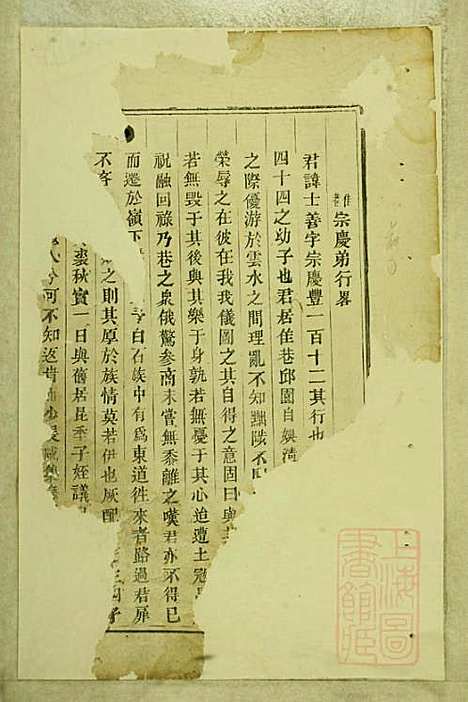 隹巷宗慶弟行畧
君諱士善字宗慶豐一百十二其行也
四十四之幼子也君居隹巷邱園自娛清
之際優游於雲水之間理亂不知黜陟不
榮辱之在彼在我我儀圖之其自得之意固曰與
若無毀于其後與其樂于身孰若無憂于其心迨遭土寇
祝融回祿乃巷之泉俄驚參商未嘗無黍離之嘆君亦不得已
而遷於嶺下 白石族中有為東道徃來者路過君扉
不吝 之則其原於族情莫若伊也厥配 子
棗秋實一日與舊居昆季子姪議
可不知返
上海圖書館藏